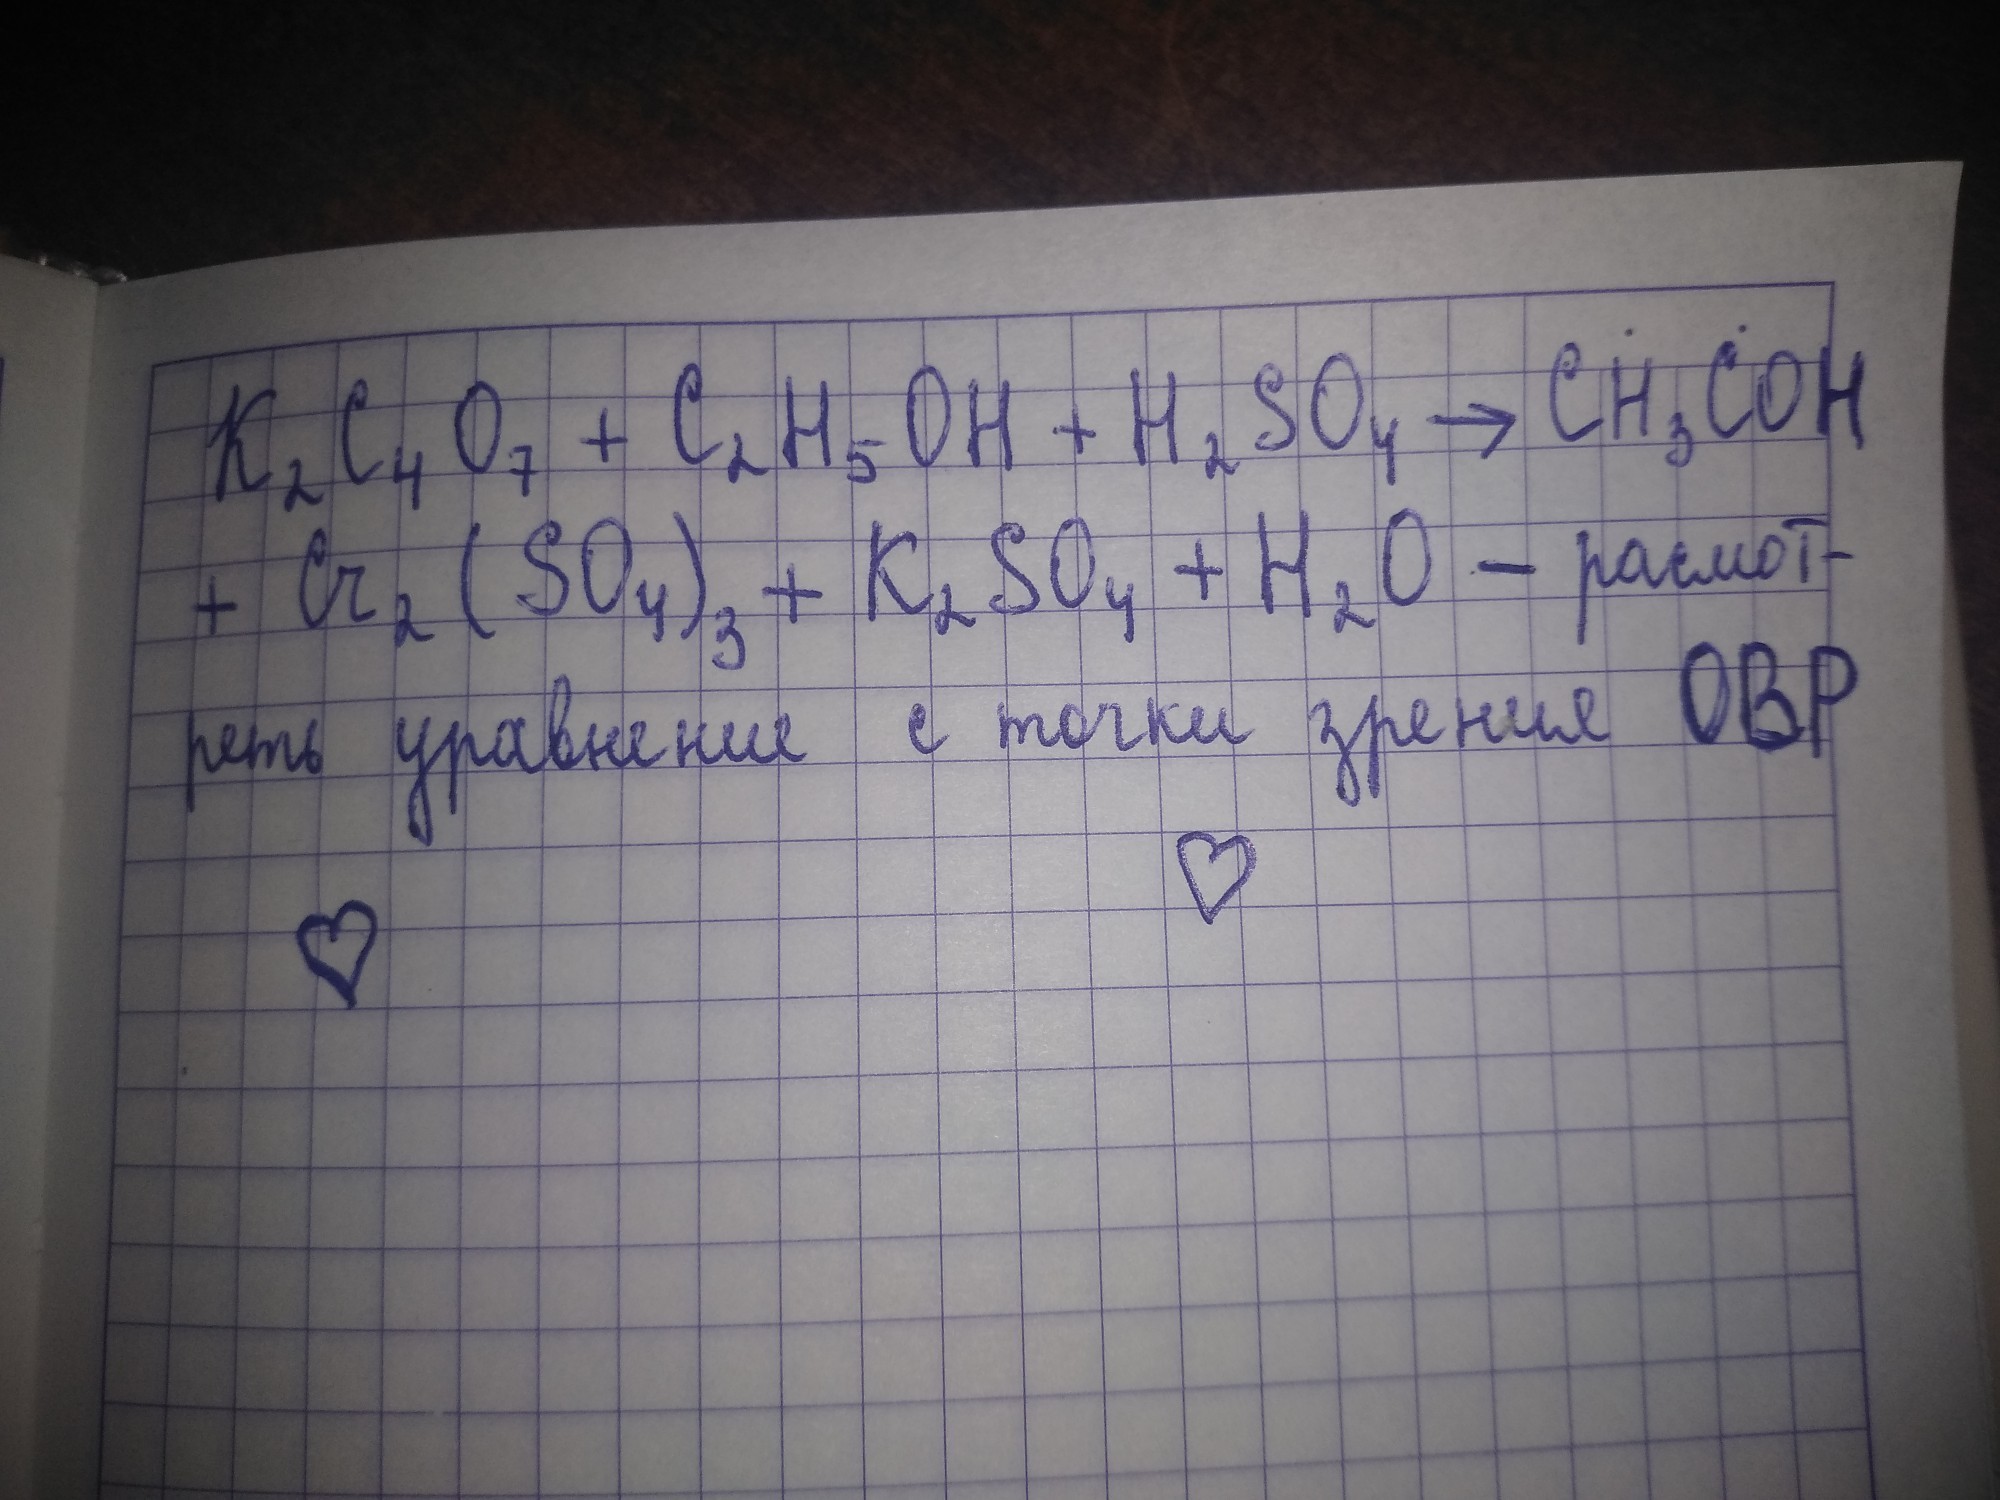 K₂C₄O₇ + C₂H₅OH + H₂SO₄ → CH₃COH
+ Cr₂(SO₄)₃ + K₂SO₄ + H₂O – расмот-
реть уравнение с точки зрения ОВР